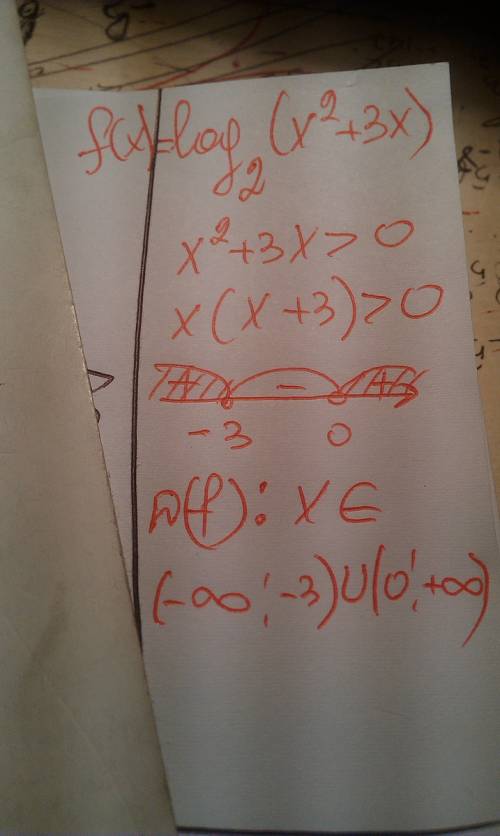 f(x)=log₂(x²+3x)
x²+3x>0
x(x+3)>0
+ - +
-3 0
D(f): x∈
(-∞;-3)∪(0;+∞)